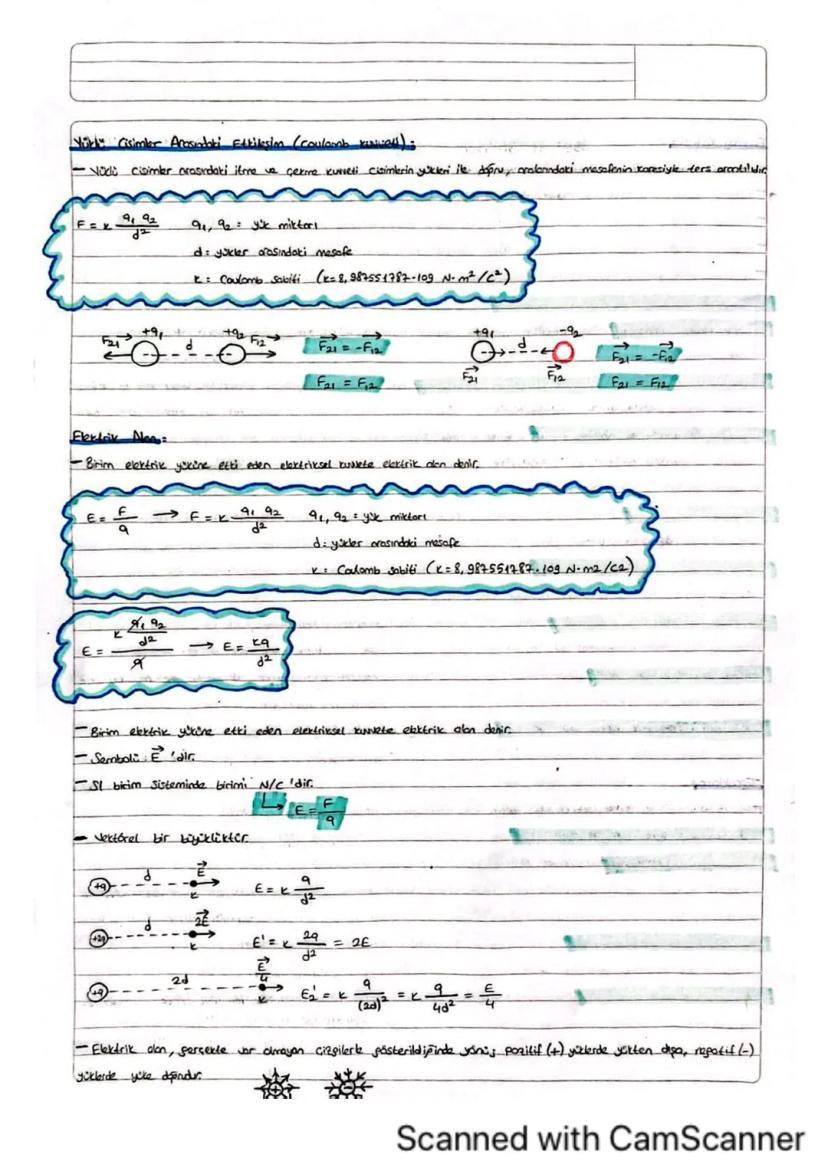 Yüklü Cisimler Arasındaki Etkileşim (Coulomb kuvveti):
- Yüklü cisimler arasındaki itme ve çekme kuvveti cisimlerin yükleri ile doğru, aralarındaki mesafenin karesiyle ters orantılıdır.
F = k q1 q2 / d² q1, q2 = yük miktarı
d = yükler arasındaki mesafe
k = Coulomb sabiti (k=8,987551787·109 N·m²/C²)
F21 +q1 d +q2 F12 F21 = -F12 +q1 d -q2 F21 = -F12
F21 F12
F21 = F12 F21 = F12
Elektrik Alan:
- Birim elektrik yüküne etki eden elektriksel kuvvete elektrik alan denir.
E = F / q → F = k q1 q2 / d² q1, q2 = yük miktarı
d = yükler arasındaki mesafe
k = Coulomb sabiti (k=8,987551787·109 N·m2/C2)
E = k q1 q2 / d2 / q → E = kq / d²
- Birim elektrik yüküne etki eden elektriksel kuvvete elektrik alan denir.
- Sembolü: E 'dir.
- SI birim sisteminde birimi N/C 'dir.
E = F / q
- Vektörel bir büyüklüktür.
+q d E k E = k q / d²
+2q d 2E k E' = k 2q / d² = 2E
+q 2d E/4 k E2' = k q / (2d)² = k q / 4d² = E / 4
- Elektrik alan, gerçekte var olmayan çizgilerle gösterildiğinde yönü; pozitif (+) yüklerde yükten dışa, negatif (-)
yüklerde yüke doğrudur.
+ -
Scanned with CamScanner